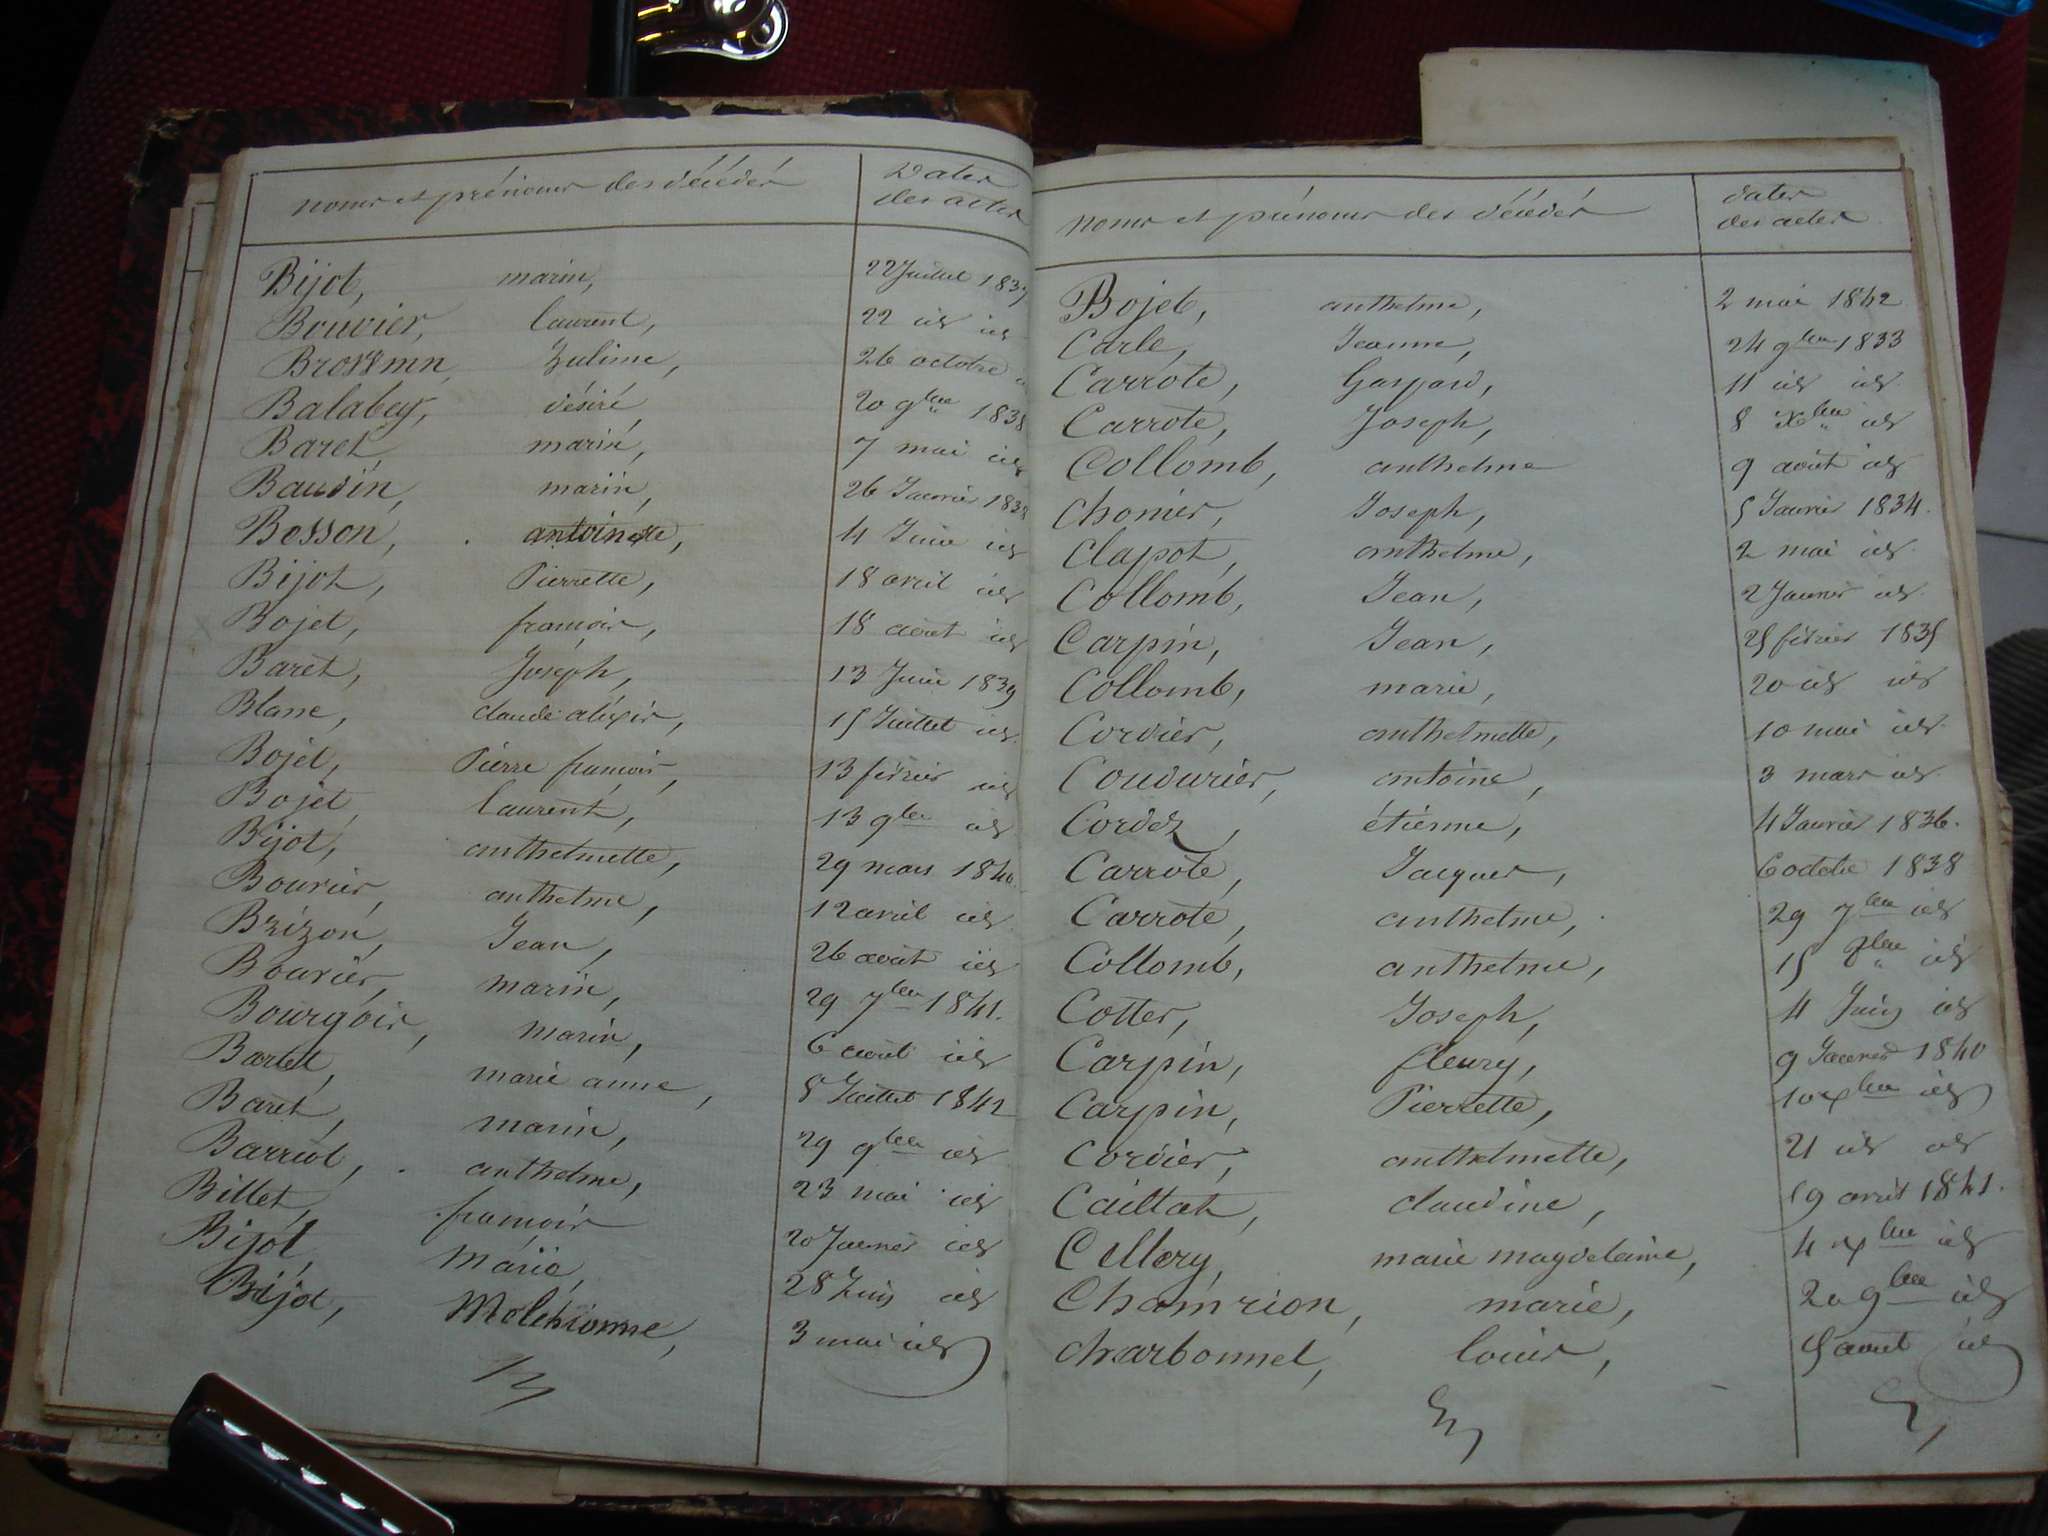 noms et prénoms des décédés
Dates
des actes
Bijot, marin, 22 Juillet 1837
Bouvier, laurent, 22 id id
Zulime, 26 octobre
Balabey, désiré 20 9bre 1838
Baret marin, 7 mai id
Baudin, marin, 26 Janvier 1838
Bosson, antoinette, 4 Juin id
Bijot, Pierrette, 18 avril id
Bojet, françois, 18 aout id
Baret, Joseph, 13 Juin 1839
Blanc, claude alexis, 15 Juillet id
Bojet, Pierre françois, 13 février id
Bojet laurent, 13 9bre id
Bijot, anthelmette, 29 mars 1840
Bouvier, anthelme, 12 avril id
Brizon, Jean, 26 aout id
Bouvier, marin, 29 7bre 1841.
Bourgois, marin, 6 aout id
Bartet, marie anne, 8 Juillet 1842
Baret, marin, 29 9bre id
Barriot, anthelme, 23 mai id
Billet, françois 20 Janvier id
Bijot Marie, 28 Juin id
Bijot, Melchionne, 3 mai id
noms et prénoms des décédés
dates
des actes
Bojet, anthelme, 2 mai 1842
Carle, Jeanne, 24 9bre 1833
Carrote, Gaspard, 11 id id
Carrote, Joseph, 8 xbre id
Collomb, anthelme 9 août id
Chonier, Joseph, 5 Janvier 1834.
Clapot, anthelme, 2 mai id
Collomb, Jean, 2 Janvier id
Carpin, Jean, 25 février 1835
Collomb, marie, 20 id id
Cordier, anthelmette, 10 mai id
Coudurier, antoine, 3 mars id
Cordez, étienne, 4 Janvier 1836.
Carrote, Jacques, 6 octobre 1838
Carrote, anthelme, 29 7bre id
Collomb, anthelme, 15 id
Cotter, Joseph, 4 Juin id
Carpin, fleury, 9 Janvier 1840
Carpin, Pierrette, 10 xbre id
Cordier, anthelmette, 21 id id
Caillat, claudine, 19 avril 1841.
Cellery, marie magdelaine, 4 xbre id
Champion, marie, 20 9bre id
charbonnet, louis, 5 aout id